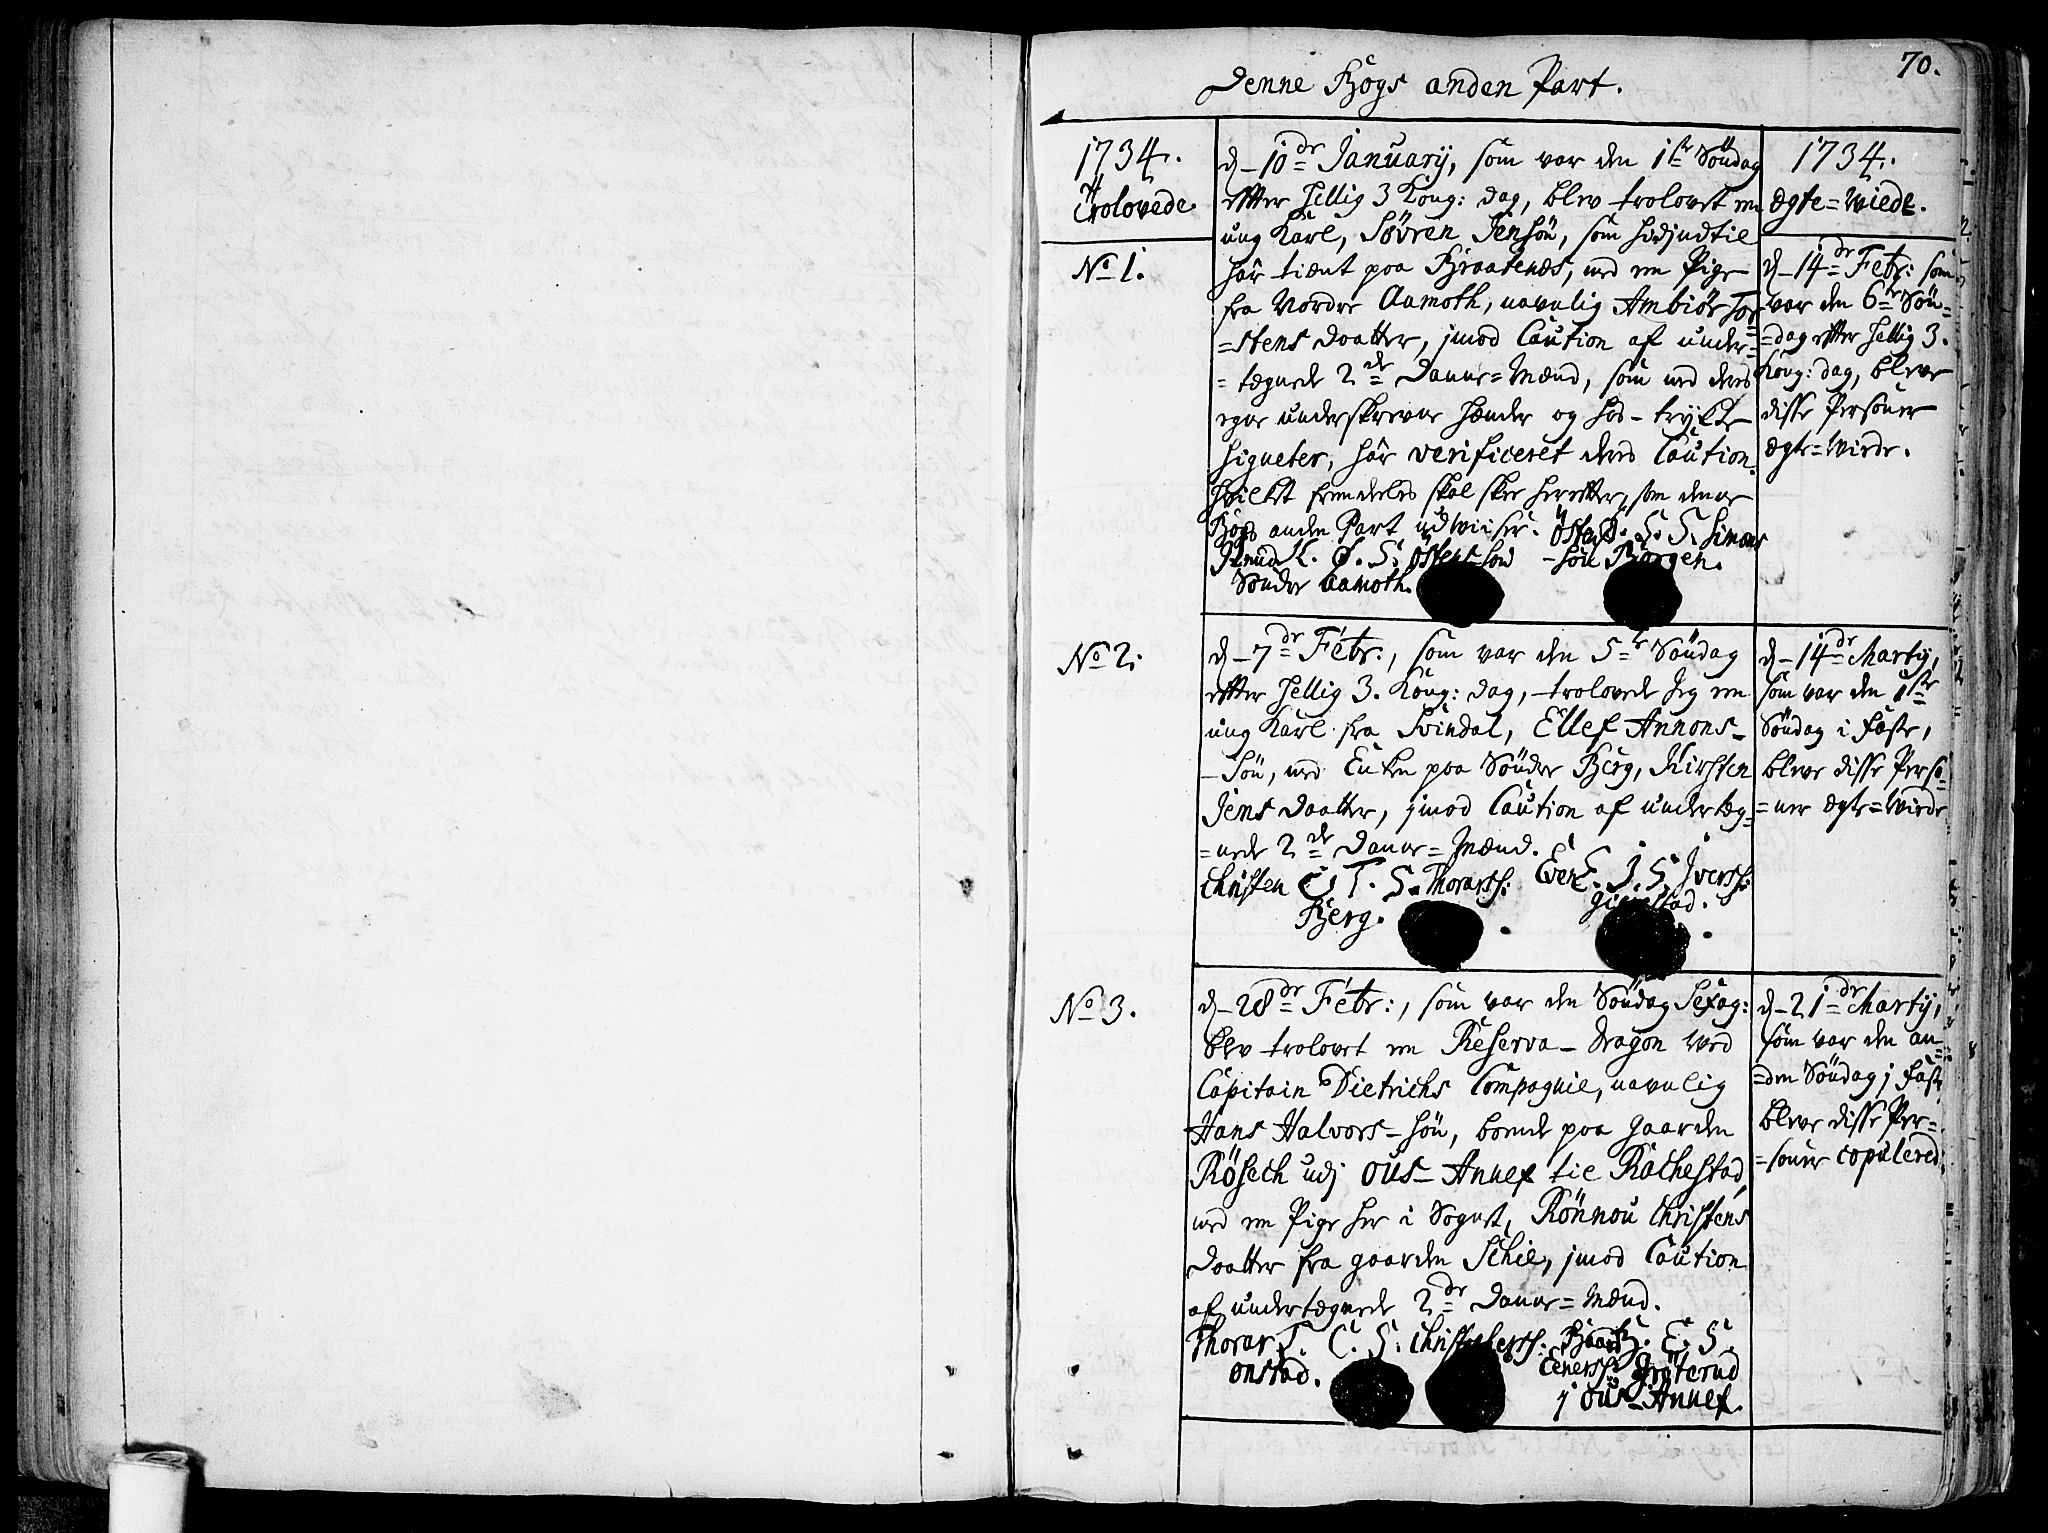 70.
Denne Bøgs anden Part.
1734.
Trolovede
No 1.
d. 10de January, som var den 1ste Søndag
efter Hellig 3 Kong: dag, blev trolovet en
ung Karl, Søvren Jensøn, som hidindtil
har tient paa Braatenes, med en Pige
fra Nordre Aamoth, navnlig Ambiør Tor=
=stens Daatter, jmod Caution af under=
=tegnede 2de Danne=Mænd, som med deres
egne underskrevne Hænder og hos-trykte
Signeter, har verificeret deres Caution.
Hvilket fremdeles skal skee herefter, som denne
Bøgs anden Part udwiiser. Østen Ø. S. S. Simons
Knud K. Ø. S. Østens-søn -søn Børgen.
Sønder Aamoth.
1734.
Ægte=Wiede.
d. 14de Febr: som
var den 6te Søn=
=dag efter Hellig 3.
Kong: dag, bleve
disse Personer
ægte=Wiede.
No 2.
d. 7de Febr:, som var den 5te Søndag
efter Hellig 3. Kong: dag, trolovede Jeg en
ung Karl fra Svindal, Ellef Annons-
-Søn, med Enken paa Sønder Berg, Kirsten
Jens Daatter, jmod Caution af underteg=
=nede 2de Danne=Mænd.
Christen C. T. S. Thorarss: Even E. J. S. Iverss:
Berg.
d. 14de Martij,
som var den 1ste
Søndag i Faste,
bleve disse Perso=
=ner ægte=Wiede
No 3.
d. 28de Febr:, som var den Søndag Sexag:
blev trolovet en Reserva-Dragon ved
Capitain Dietrichs Compagnie, navnlig
Hans Halvors-søn, boende paa Gaarden
Røsech udj Ous-Annex til Rachestad,
med en Pige her i Sognet, Rønnou Christens
Daatter fra gaarden Schie, jmod Caution
af undertegnede 2de Danne=Mænd.
Thorar T. C. S. ChristophersS: Baard B. E. S.
Onstad. Eenerss: Grøterud
j Ous-Annex.
d. 21de Martij,
som var den an=
=den Søndag j Faste
bleve disse Per=
=soner copulered.